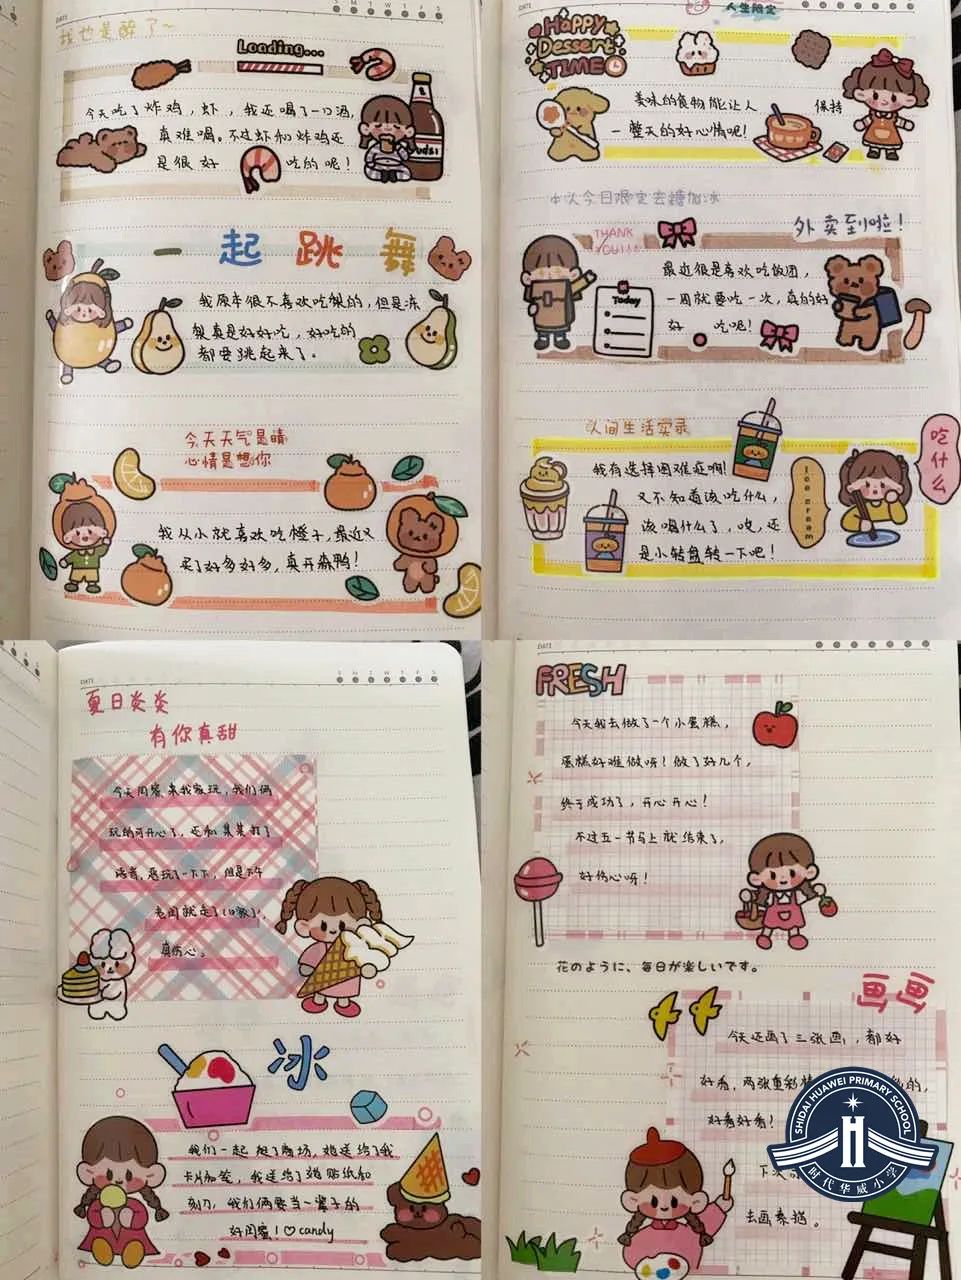 DATE
S M T W T F S
我也是醉了~
Loading...
今天吃了炸鸡,虾,我还喝了一口酒,
真难喝。不过虾和炸鸡还
是很好吃的呢!
一起跳舞
我原本很不喜欢吃梨的,但是冻
梨真是好好吃,好吃的
都要跳起来了。
今天天气是晴
心情是想你
我从小就喜欢吃橙子,最近又
买了好多好多,真开森鸭!
DATE
人生限定
Happy
Dessert
TIME
美味的食物能让人保持
一整天的好心情呢!
今日限定去糖加冰
外卖到啦!
THANK
YOU!
Today
最近很是喜欢吃饭团,
一周就要吃一次,真的好
好吃呢!
人间生活实录
吃什么
我有选择困难症啊!
又不知道该吃什么,
该喝什么了,哎,还
是小转盘转一下吧!
Ice cream
DATE
S M T W T F S
夏日炎炎
有你真甜
今天闺蜜来我家玩,我们俩
玩的可开心了,还和某某打了
语音,恶玩了一下下,但是下午
她就走了
真伤心。
冰
我们一起逛了商场,她送给了我
卡片和笔,我送给了她贴纸和
刻刀,我们俩要当一辈子的
好闺蜜!♡candy
DATE
FRESH
今天我去做了一个小蛋糕,
蛋糕好难做呀!做了好几个,
终于成功了,开心开心!
不过五一节马上就结束了,
好伤心呀!
花のように、毎日が楽しいです。
画画
今天还画了三张画,都好
好看,两张重彩
的,
好看好看!
下次
去画素描。
SHIDAI HUAWEI PRIMARY SCHOOL
时代华威小学